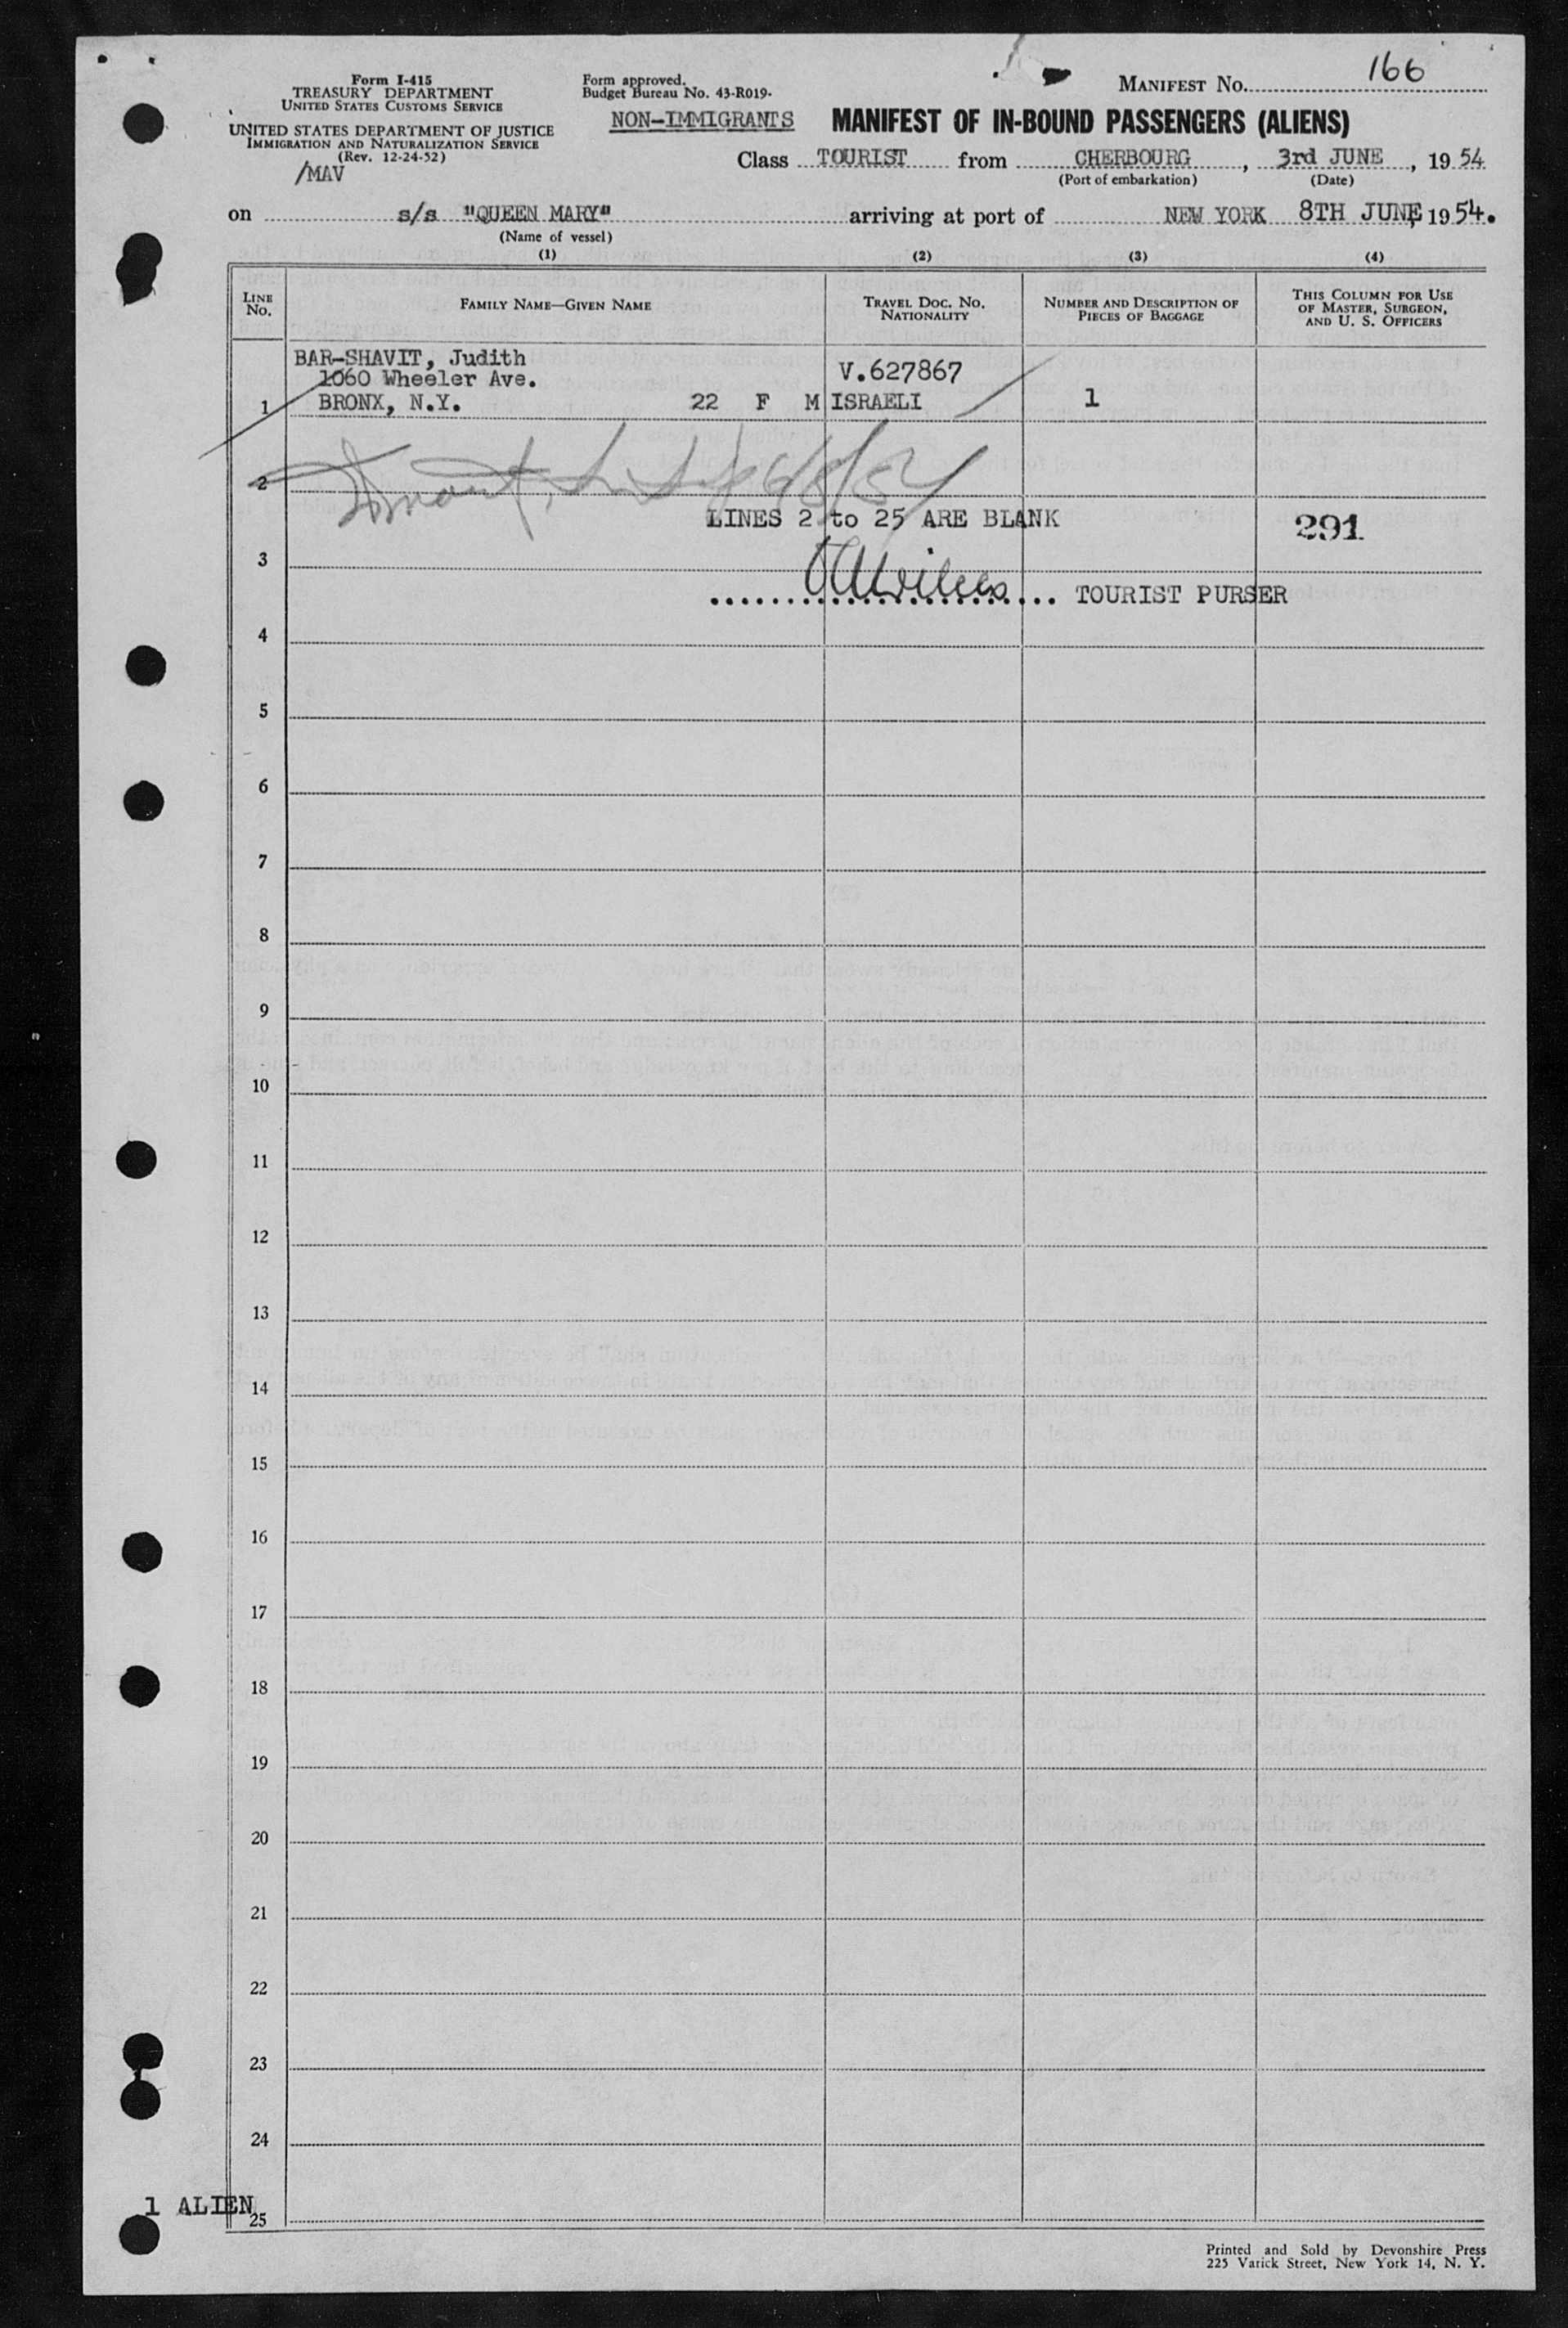 Form I-415
TREASURY DEPARTMENT
UNITED STATES CUSTOMS SERVICE
UNITED STATES DEPARTMENT OF JUSTICE
IMMIGRATION AND NATURALIZATION SERVICE
(Rev. 12-24-52)
/MAV
Form approved.
Budget Bureau No. 43-R019.
MANIFEST No. 166
NON-IMMIGRANTS MANIFEST OF IN-BOUND PASSENGERS (ALIENS)
Class TOURIST from CHERBOURG, 3rd JUNE, 1954
(Port of embarkation) (Date)
on s/s "QUEEN MARY" arriving at port of NEW YORK 8TH JUNE, 1954.
(Name of vessel)
(1) (2) (3) (4)
LINE No.
FAMILY NAME—GIVEN NAME
TRAVEL DOC. NO. NATIONALITY
NUMBER AND DESCRIPTION OF PIECES OF BAGGAGE
THIS COLUMN FOR USE OF MASTER, SURGEON, AND U. S. OFFICERS
BAR-SHAVIT, Judith
1060 Wheeler Ave. V.627867
1 BRONX, N.Y. 22 F M ISRAELI 1
2 6/8/54
LINES 2 to 25 ARE BLANK 291
3
TOURIST PURSER
4
5
6
7
8
9
10
11
12
13
14
15
16
17
18
19
20
21
22
23
24
1 ALIEN
25
Printed and Sold by Devonshire Press
225 Varick Street, New York 14, N. Y.